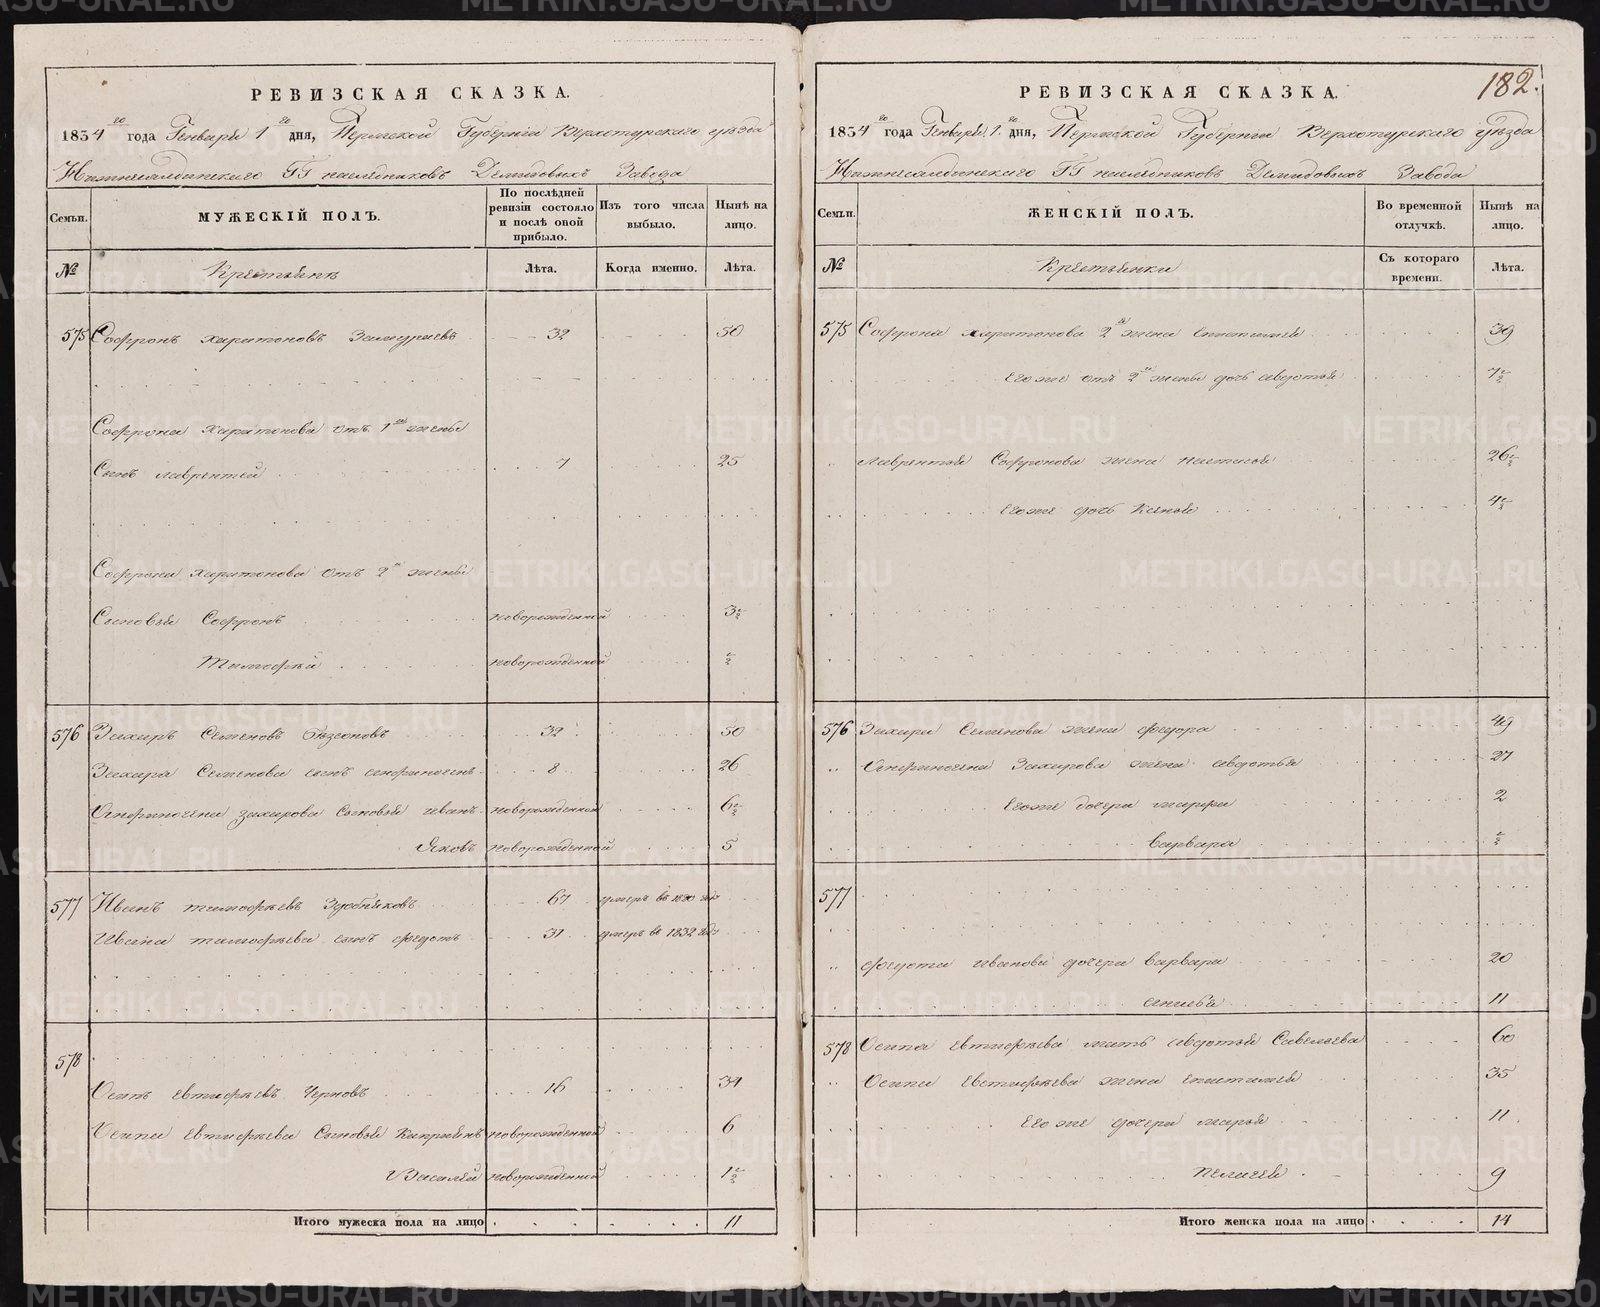 182.
РЕВИЗСКАЯ СКАЗКА.
1834го года Генваря 1го дня, Пермской Губерніи Верхотурскаго уѣзда
Нижнесалдинскаго ГГ наслѣдниковъ Демидовыхъ Завода
Семьи.
МУЖЕСКІЙ ПОЛЪ.
По послѣдней ревизіи состояло и послѣ оной прибыло.
Изъ того числа выбыло.
Нынѣ на лицо.
№
Крестьянѣ
Лѣта.
Когда именно.
Лѣта.
575 Софронъ харитоновъ Замураевъ 32 50
Софрона харитонова отъ 1ой жены
Сынъ лаврентей 7 25
Софрона харитонова отъ 2й жены
Сыновья Софронъ новорожденной 3½
Тимофѣй новорожденной ½
576 Захаръ Семеновъ 32 50
Захара Семенова сынъ 8 26
захарова Сыновья иванъ новорожденной 6½
Яковъ новорожденной 5
577 Иванъ тимофѣевъ Здобняковъ 67 умеръ въ 1820 году
Ивана тимофѣева сынъ федотъ 31 умеръ въ 1832 году
578
Осипъ евтифѣевъ Черновъ 16 34
Осипа евтифѣева Сыновья Капріянъ новорожденной 6
Василей новорожденной 1½
Итого мужеска пола на лицо 11
РЕВИЗСКАЯ СКАЗКА.
1834го года Генваря 1го дня, Пермской Губерніи Верхотурскаго уѣзда
Нижнесалдинскаго ГГ наслѣдниковъ Демидовыхъ Завода
Семьи.
ЖЕНСКІЙ ПОЛЪ.
Во временной отлучкѣ.
Нынѣ на лицо.
№
Крестьянки
Съ котораго времени.
Лѣта.
575 Софрона харитонова 2я жена епистимея 39
Его же отъ 2й жены дочь авдотья 7½
лаврентья Софронова жена настасья 26½
Его же дочь Ксенья 4½
576 Захара Семенова жена федора 49
Захарова жена авдотья 27
Его же дочери марфа 2
варвара ½
577
федота иванова дочери варвара 20
анисья 11
578 Осипа евтифѣева мать авдотья Савельева 60
Осипа евтифѣева жена епистимея 35
Его же дочери марья 11
пелагея 9
Итого женска пола на лицо 14